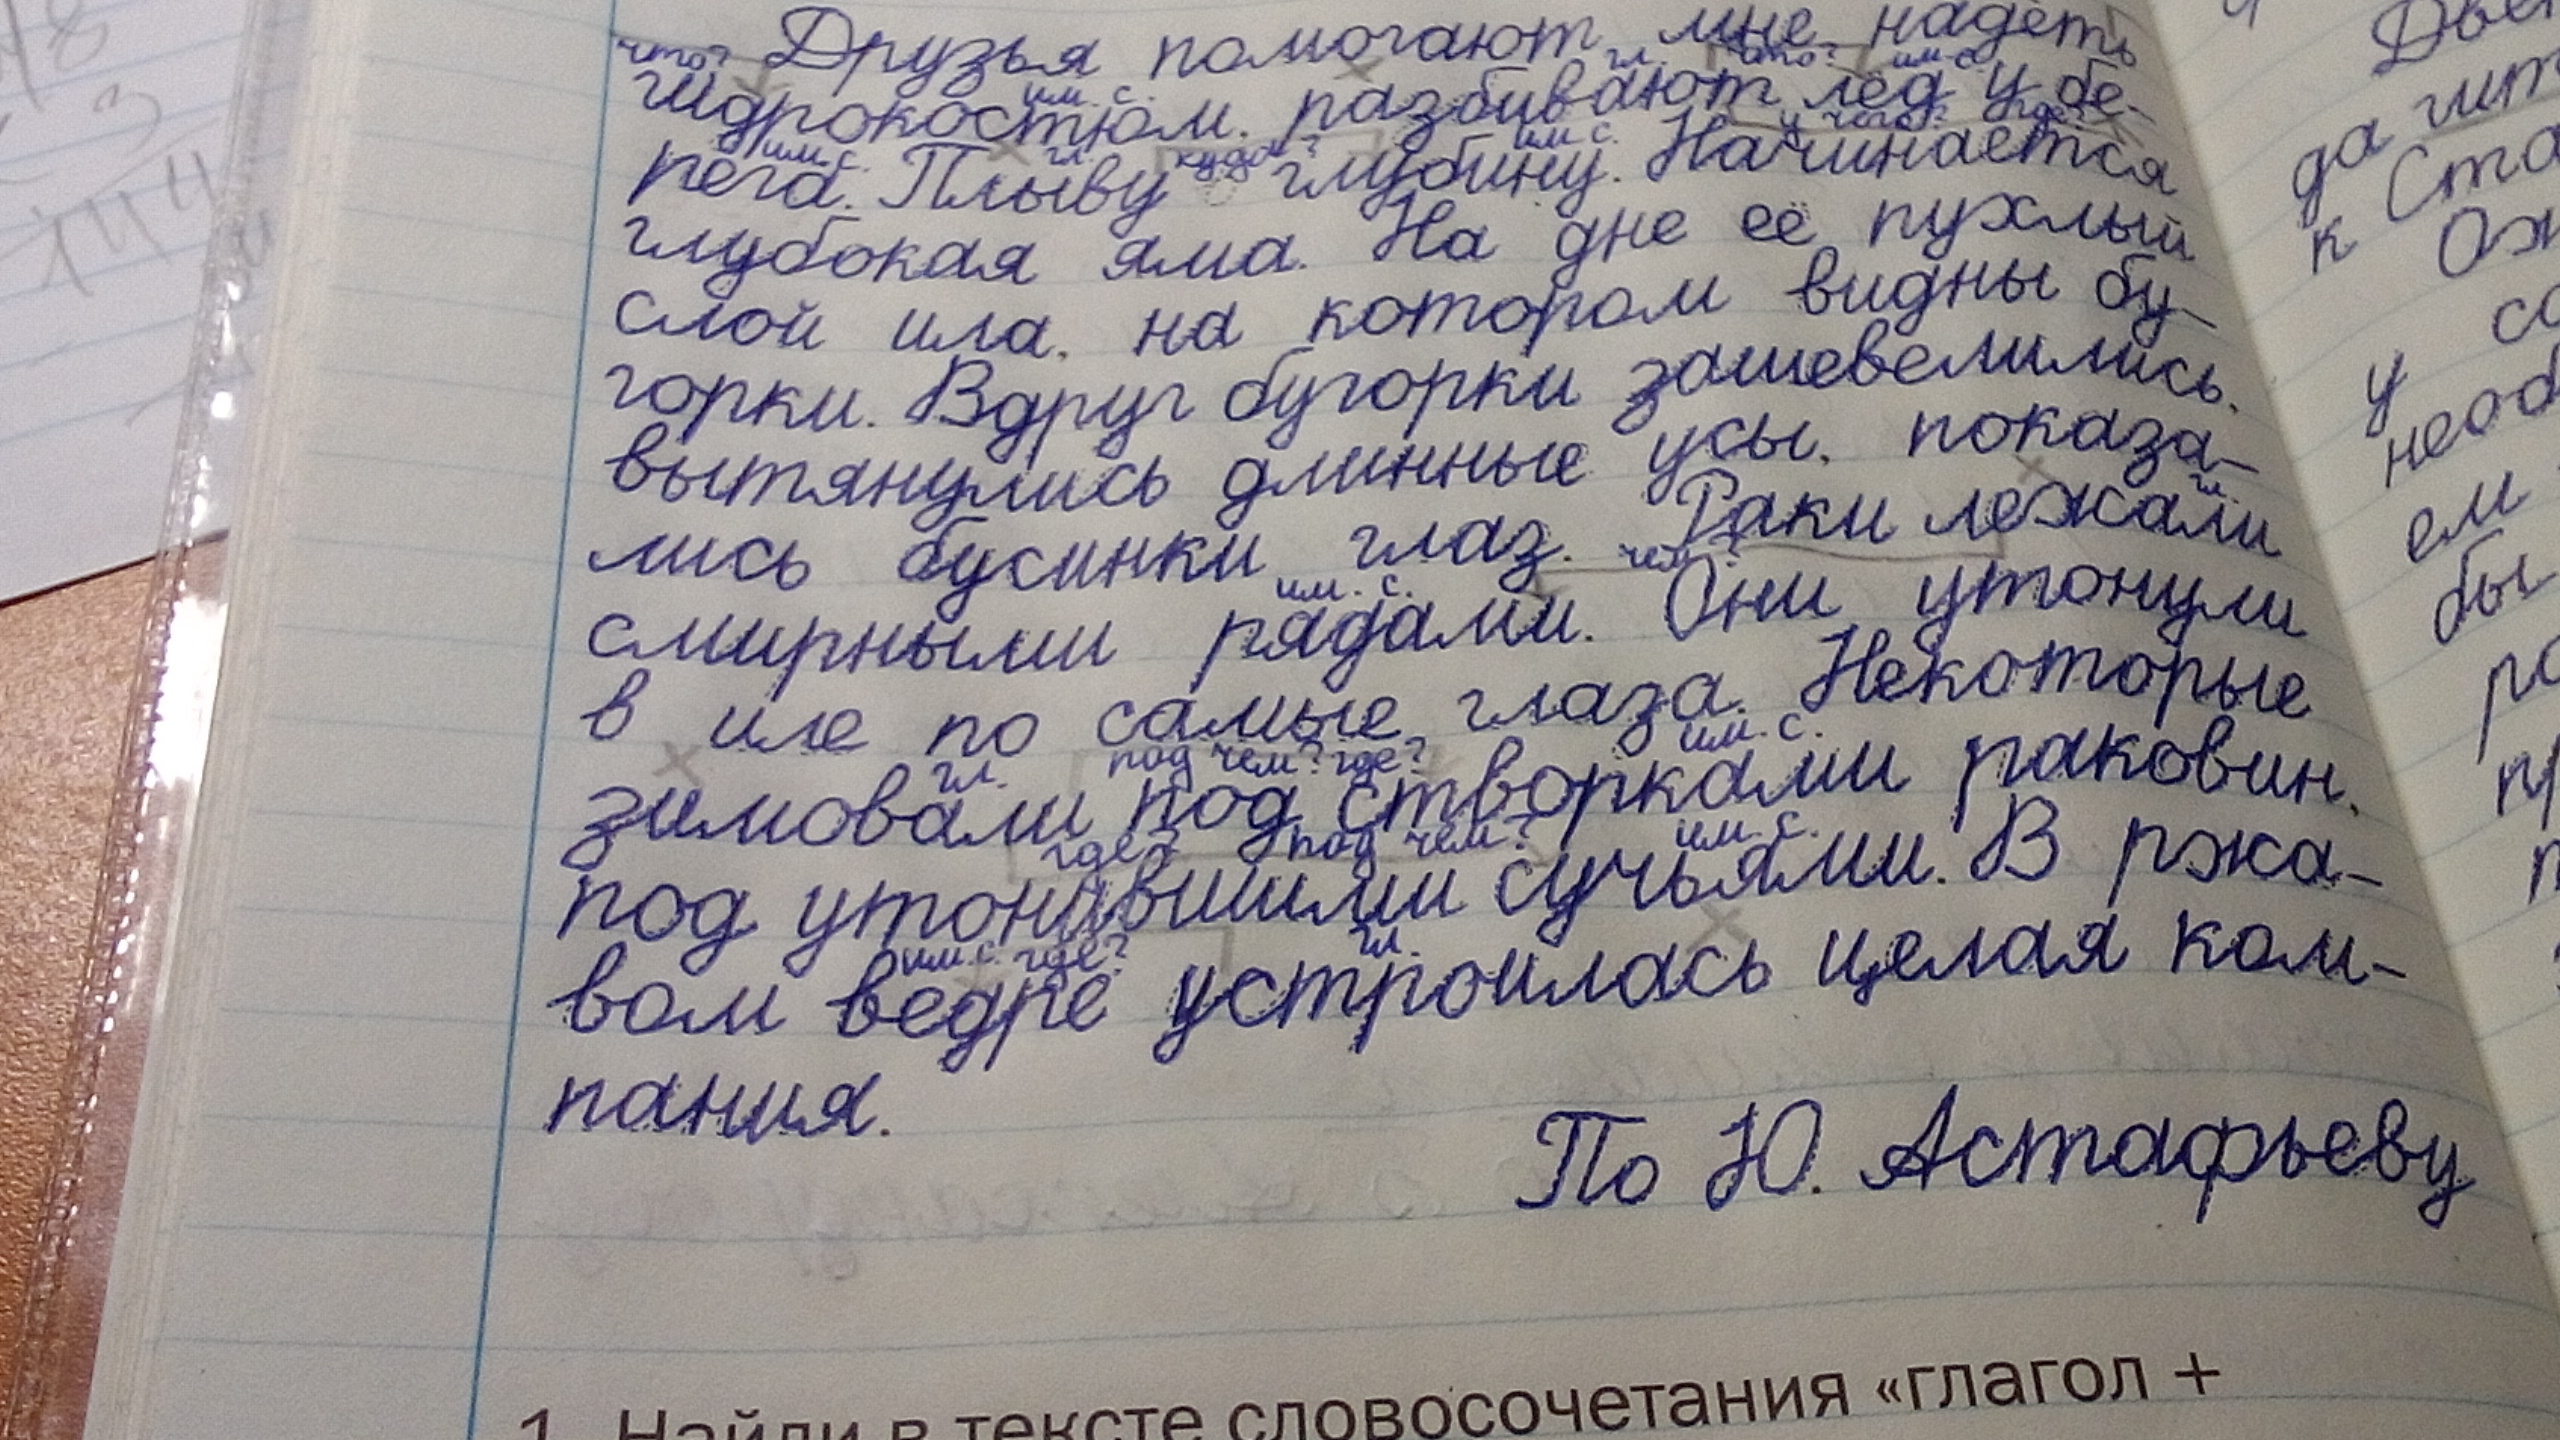 Друзья помогают мне надеть
что? гл. что? им. с.
гидрокостюм, разбивают лёд у бе-
им. с. у чего? где?
рега. Плыву в глубину. Начинается
им. с. гл. куда? им. с.
глубокая яма. На дне её пухлый
слой ила, на котором видны бу-
горки. Вдруг бугорки зашевелились,
вытянулись длинные усы, показа-
лись бусинки глаз. Раки лежали
гл.
им. с. чем?
смирными рядами. Они утонули
в иле по самые глаза. Некоторые
гл. под чем? где? им. с.
зимовали под створками раковин,
где? под чем? им. с.
под утонувшими сучьями. В ржа-
им. с. где? гл.
вом ведре устроилась целая ком-
пания.
По Ю. Астафьеву
1. Найди в тексте словосочетания «глагол +
да
к
у
ем
бы